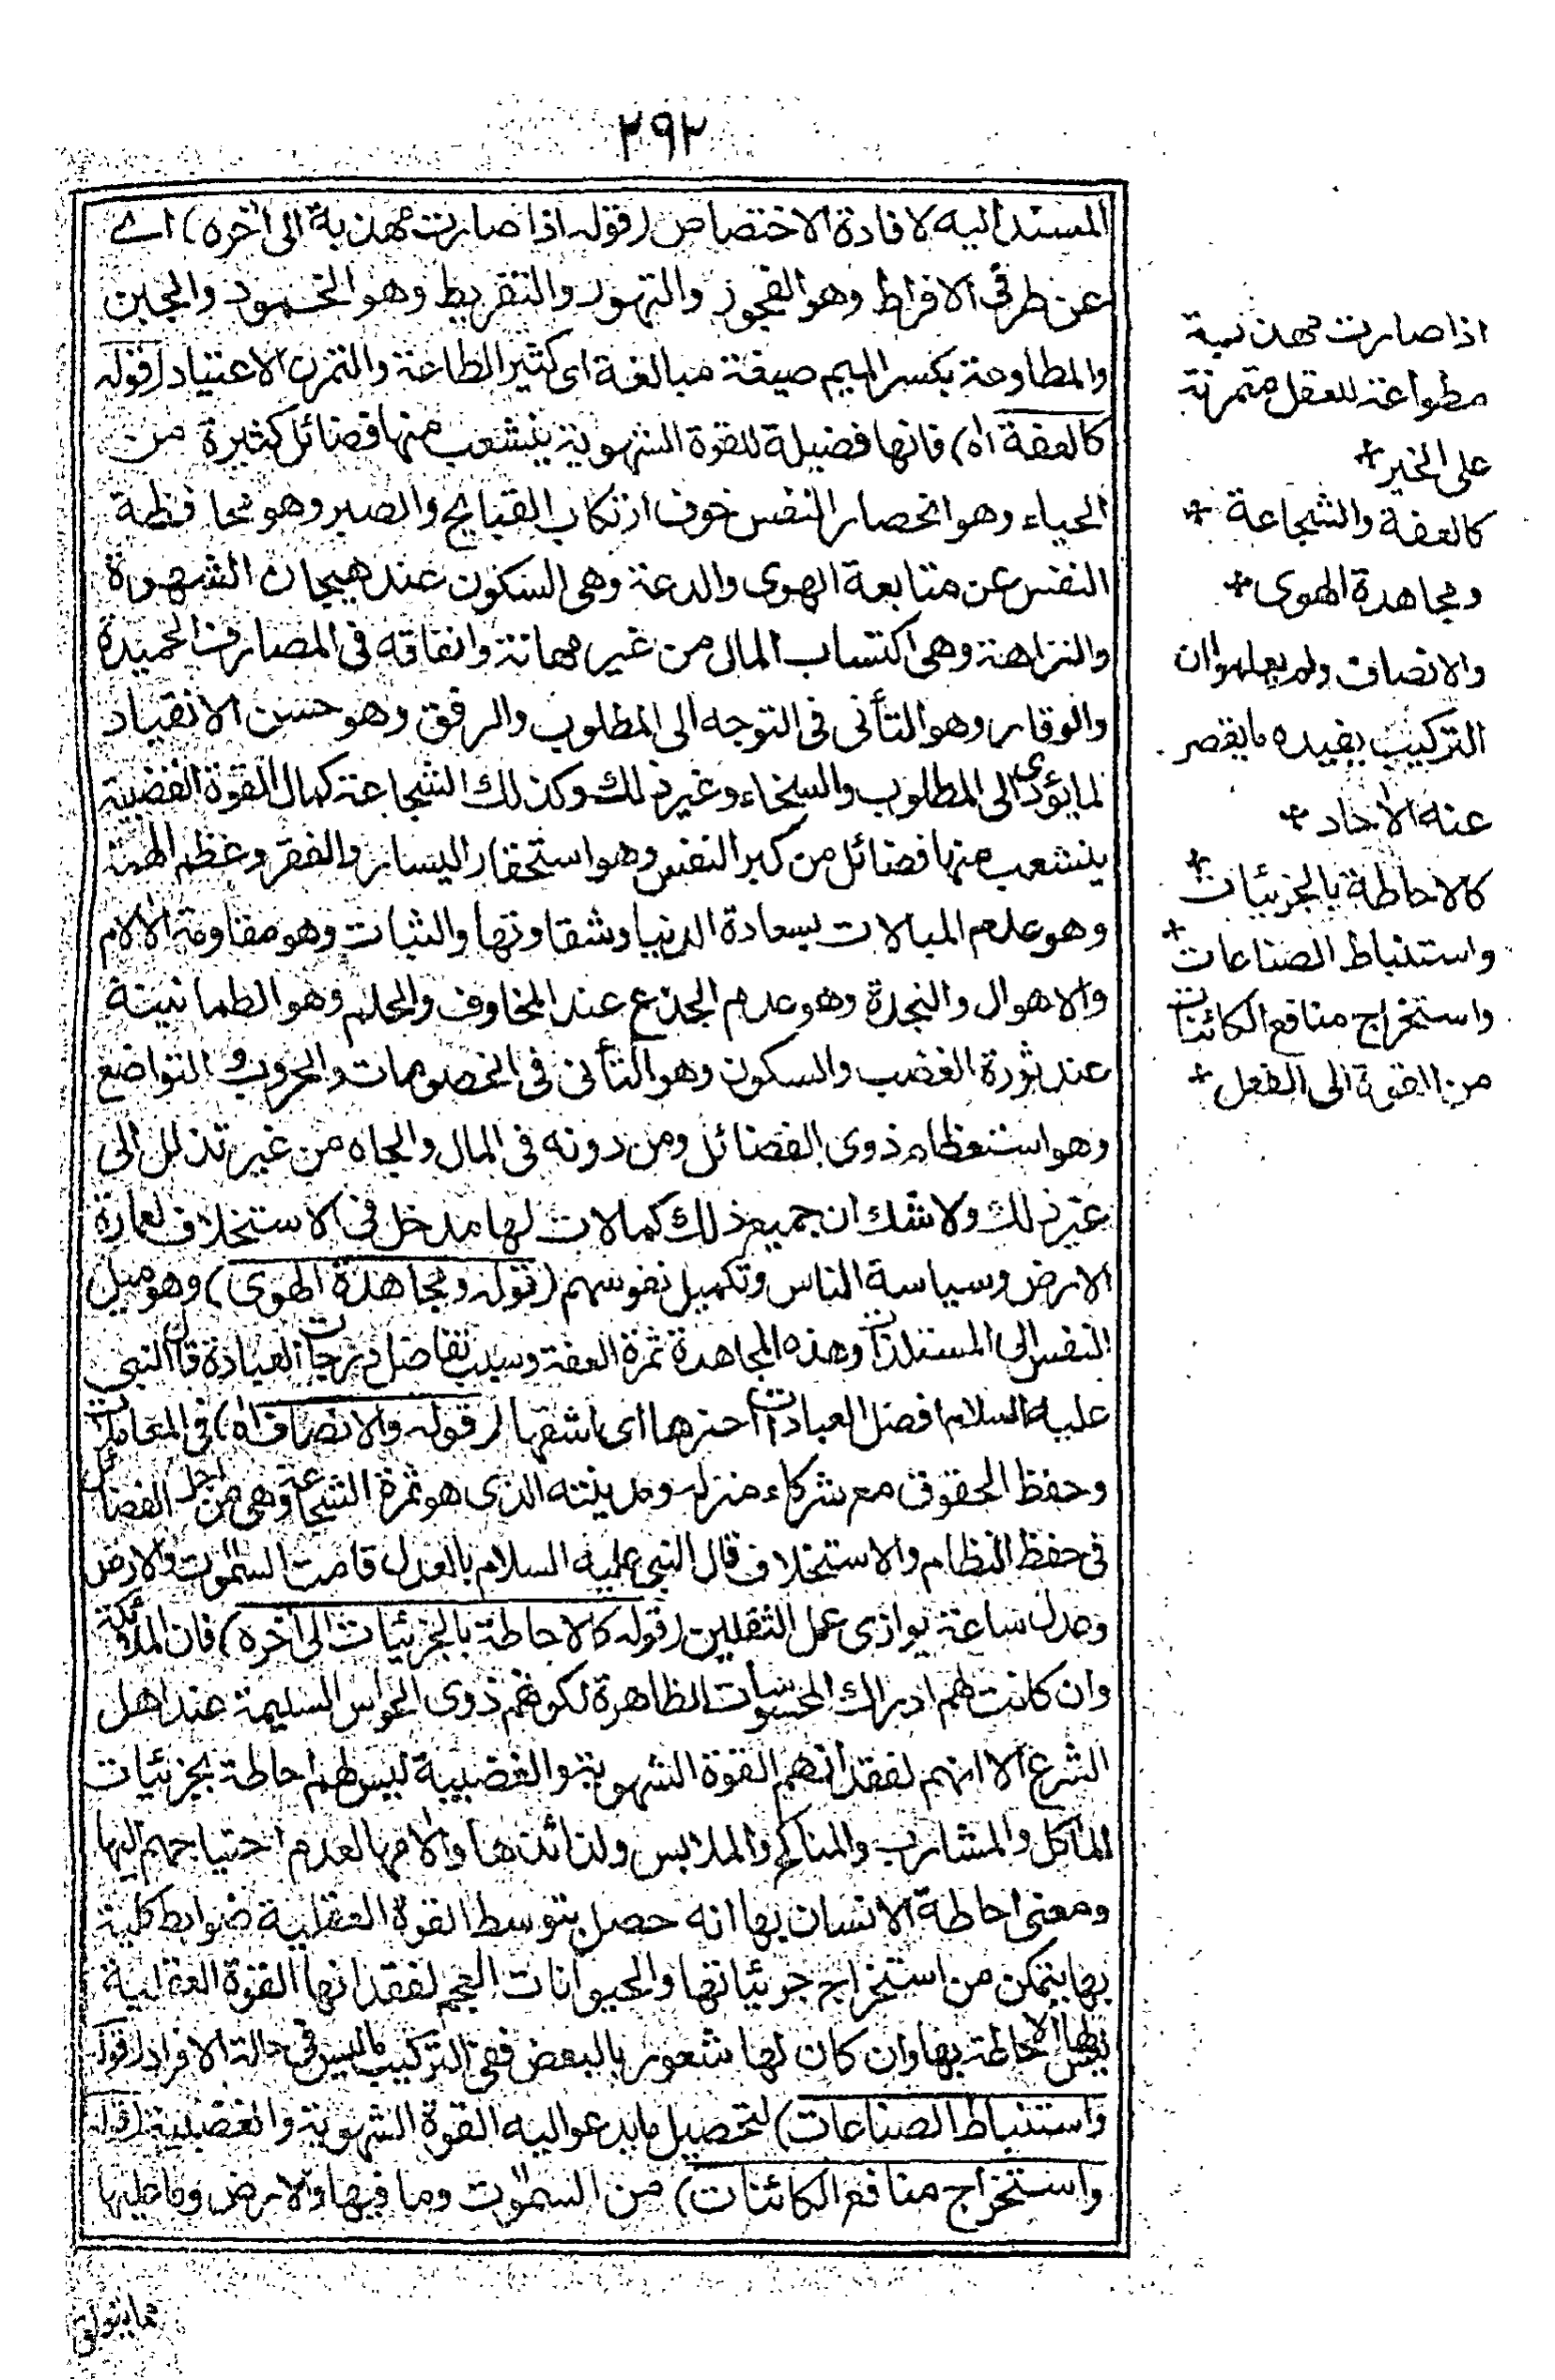 ٢٩٢
المسند اليه لافادة الاختصاص (قوله اذا صارت مهذبة الى اخره) اے
عن طرفى الافراط وهو الفجور والتهور والتفريط وهو الخمود والجبن
والمطاوعة بكسر الميم صيغة مبالغة اى كثير الطاعة والتمرن الاعتياد (قوله
كالعفة اه) فانها فضيلة للقوة الشهوية ينشعب منها فضائل كثيرة من
الحياء وهو انحصار النفس خوف ارتكاب القبايح والصبر وهو محافظة
النفس عن متابعة الهوى والدعة وهى السكون عند هيجان الشهوة
والنزاهة وهى اكتساب المال من غير مهانة وانفاقه فى المصارف الحميدة
والوقار وهو التأنى فى التوجه الى المطلوب والرفق وهو حسن الانقياد
لما يؤدى الى المطلوب والسخاء وغير ذلك وكذلك الشجاعة كمال القوة الغضبية
ينشعب منها فضائل من كبر النفس وهو استحقار اليسار والفقر وعظم الهمة
وهو عدم المبالات بسعادة الدنيا وشقاوتها والثبات وهو مقاومة الالام
والاهوال والنجدة وهو عدم الجذع عند المخاوف والحلم وهو الطمانينة
عند ثورة الغضب والسكون وهو التأنى فى الخصومات والحروب والتواضع
وهو استعظام ذوى الفضائل ومن دونه فى المال والجاه من غير تذلل الى
غير ذلك ولا شك ان جميع ذلك كمالات لها مدخل فى الاستخلاف لعمارة
الارض وسياسة الناس وتكميل نفوسهم (قوله ومجاهدة الهوى) وهو ميل
النفس الى المستلذات وهذه المجاهدة ثمرة العفة وسبب تفاضل درجات العبادة قال النبى
عليه السلام افضل العبادات احمزها اى اشقها (قوله والانصاف اه) فى المعاملات
وحفظ الحقوق مع شركاء منزله ومدينته الذى هو ثمرة الشجاعة وهى من اجل الفضائل
فى حفظ النظام والاستخلاف قال النبى عليه السلام بالعدل قامت السموت والارض
وعدل ساعة يوازى عمل الثقلين (قوله كالاحاطة بالجزئيات الى اخره) فان الملائكة
وان كانت لهم ادراك المحسوسات الظاهرة لكونهم ذوى الحواس السليمة عند اهل
الشرع الا انهم لفقدانهم القوة الشهوية والغضبية ليس لهم احاطة بجزئيات
المآكل والمشارب والمناكح والملابس ولذائذها والامها لعدم احتياجهم اليها
ومعنى احاطة الانسان بها انه حصل بتوسط القوة العقلية ضوابط كلية
بها يتمكن من استخراج جزئياتها والحيوانات العجم لفقدانها القوة العقلية
ليس لها الاحاطة بها وان كان لها شعور بالبعض ففى التركيب ما ليس فى حالة الافراد (قوله
واستنباط الصناعات) لتحصيل ما يدعو اليه القوة الشهوية والغضبية (قوله
واستخراج منافع الكائنات) من السموت وما فيها والارض وما عليها
اذا صارت مهذبة
مطواعة للعقل متمرنة
على الخير *
كالعفة والشجاعة *
ومجاهدة الهوى *
والانصاف ولم يعلموا ان
التركيب يفيده ما يقصر
عنه الاحاد *
كالاحاطة بالجزئيات *
واستنباط الصناعات *
واستخراج منافع الكائنات
من القوة الى الفعل *